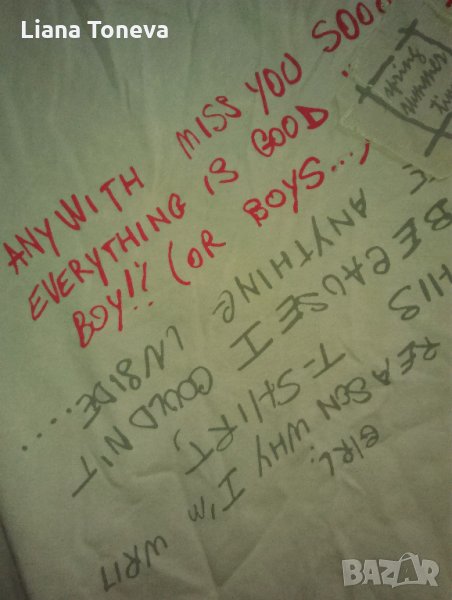 Liana Toneva
ANYWITH MISS YOU SOON
EVERYTHING IS GOOD
BOY!! (OR BOYS...,
spring
summer
GIRL!
REASON WHY I'M WRIT
HIS T-SHIRT,
BECAUSE I COULDN'T
E ANYTHING INSIDE....
BAZAR